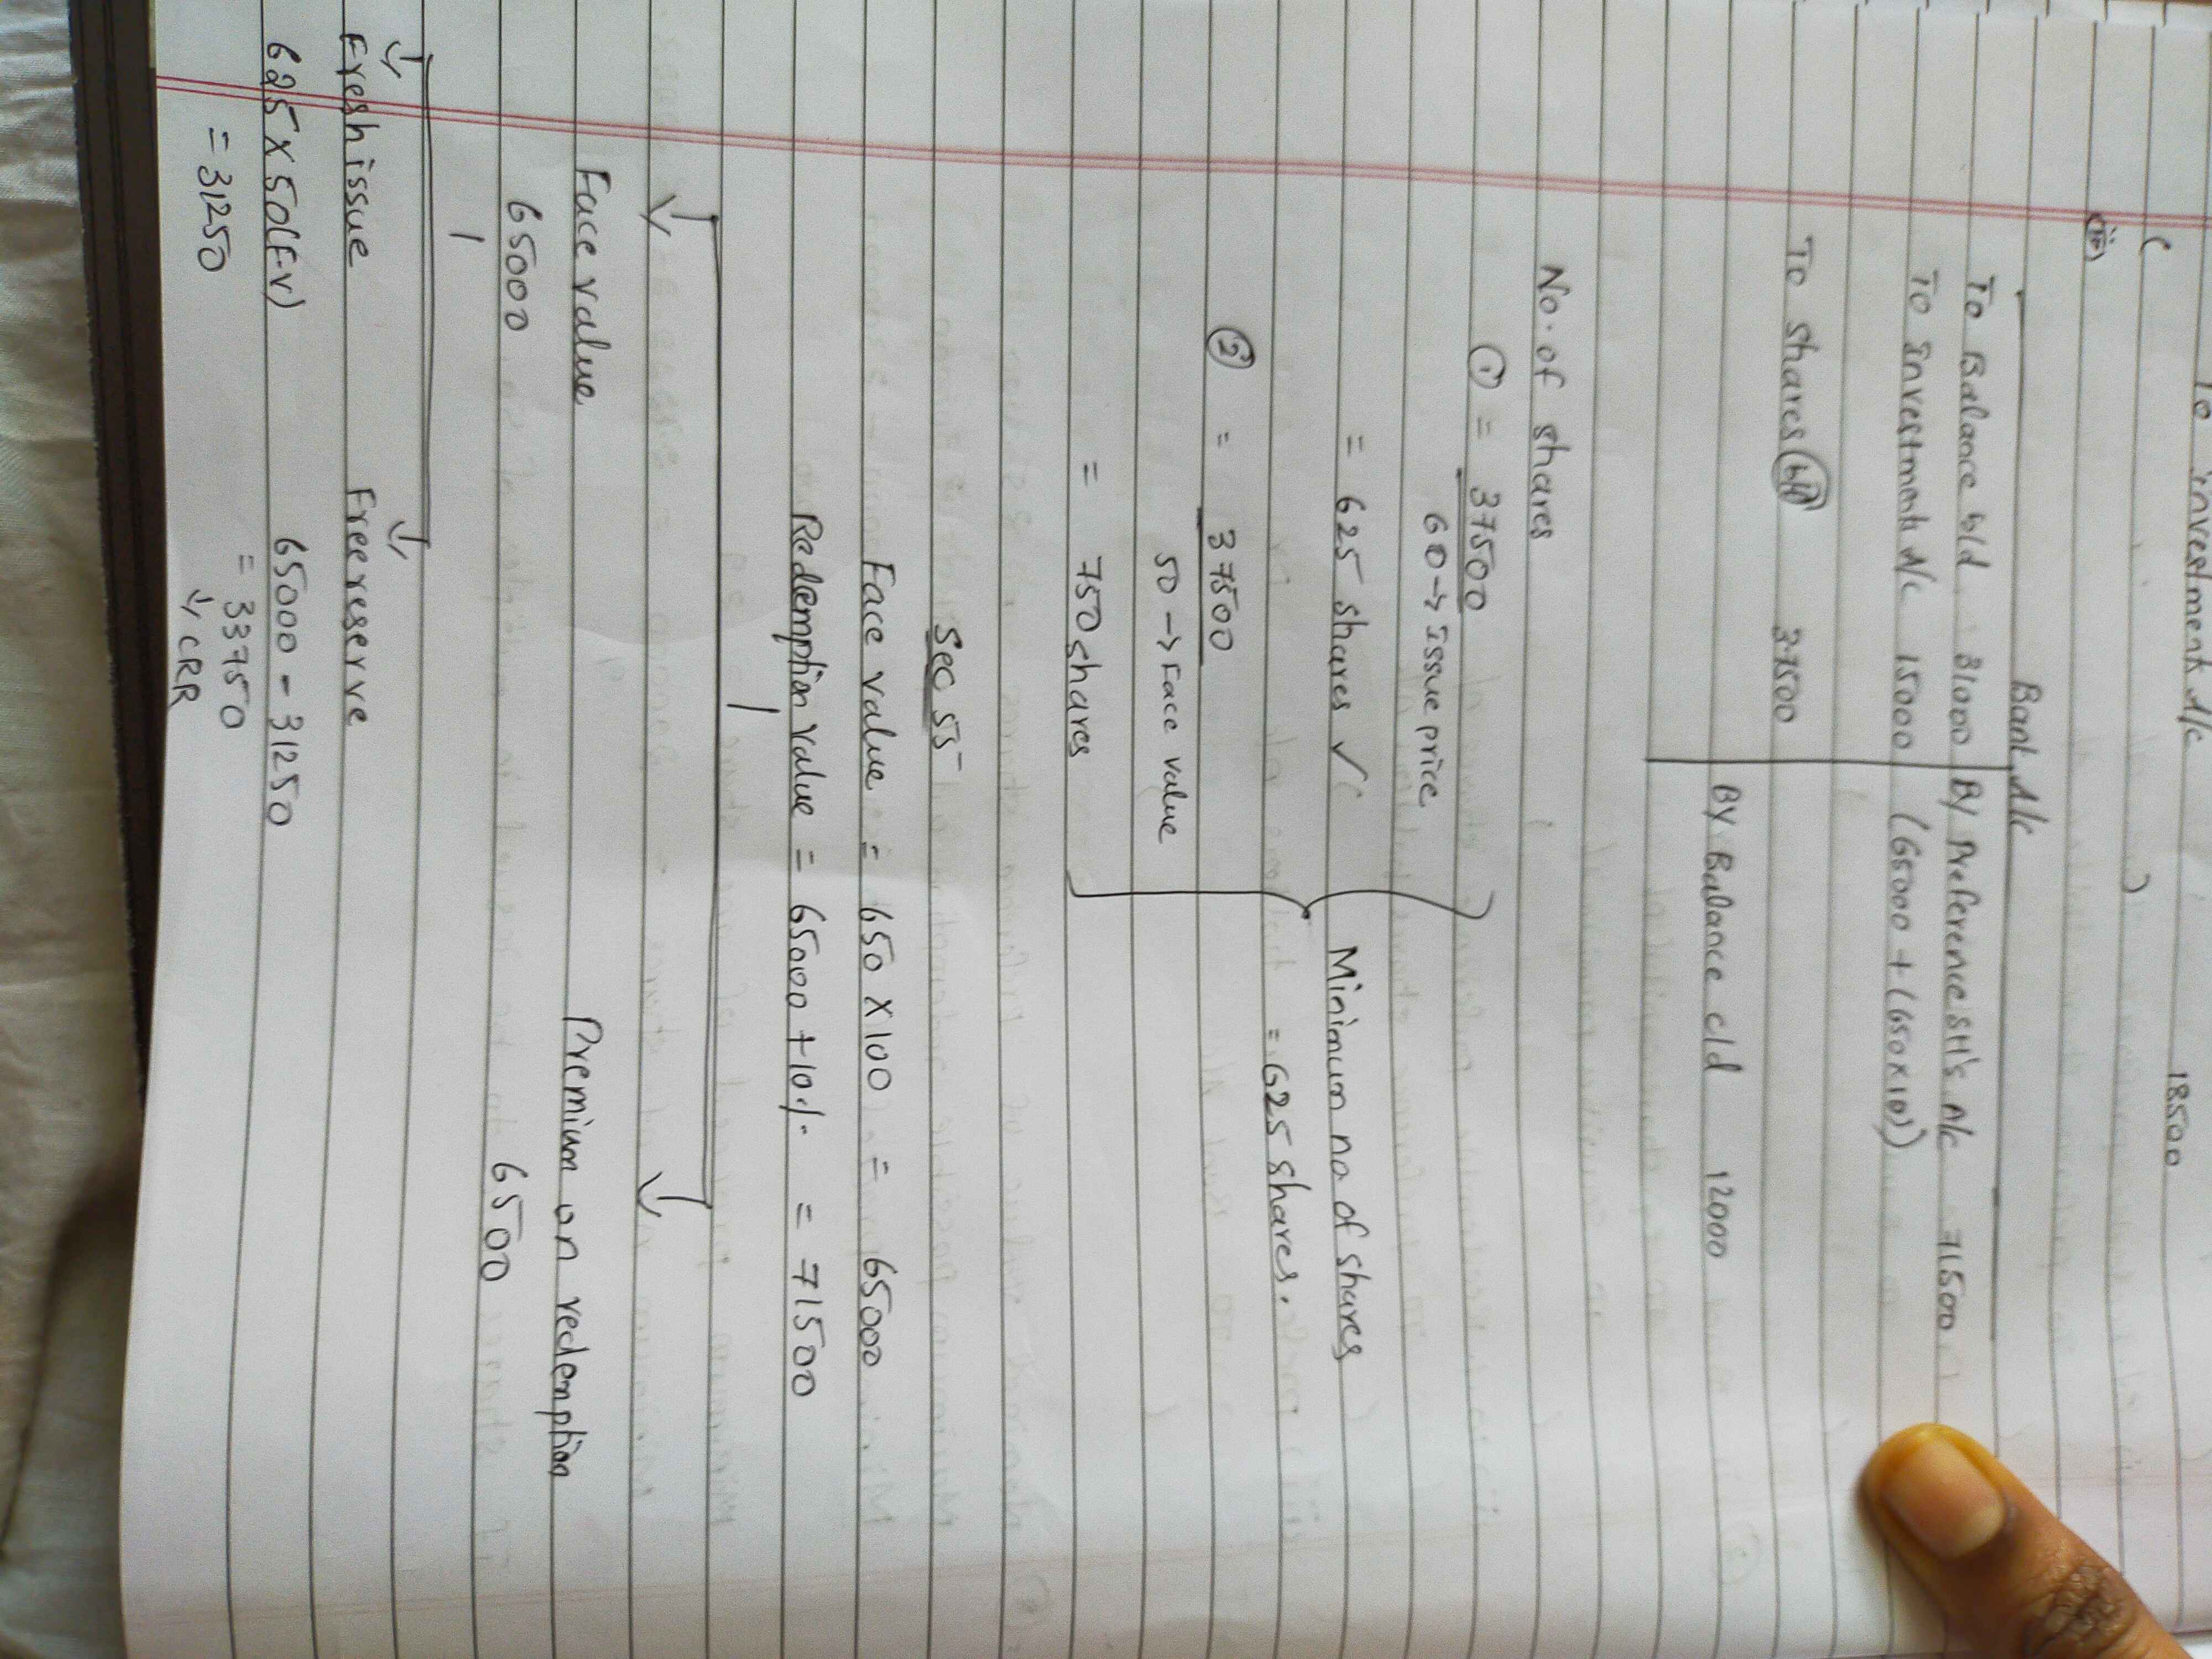 To Investment A/c 18500
(ii)
Bank A/c
To Balance b/d 31000 By Preference SH's A/c 71500
To Investment A/c 15000 (65000 + (650 x 10))
To shares b/f 37500
By Balance c/d 12000
No. of shares
① = 37500
60 → Issue price
= 625 shares ✓
Minimum no. of shares
= 625 shares.
② = 37500
50 → Face value
= 750 shares
Sec 55
Face value = 650 x 100 = 65000
Redemption value = 65000 + 10% = 71500
Face value Premium on redemption
65000 6500
Fresh issue Free reserve
625 x 50 (F.V) 65000 - 31250
= 31250 = 33750
↓ CRR